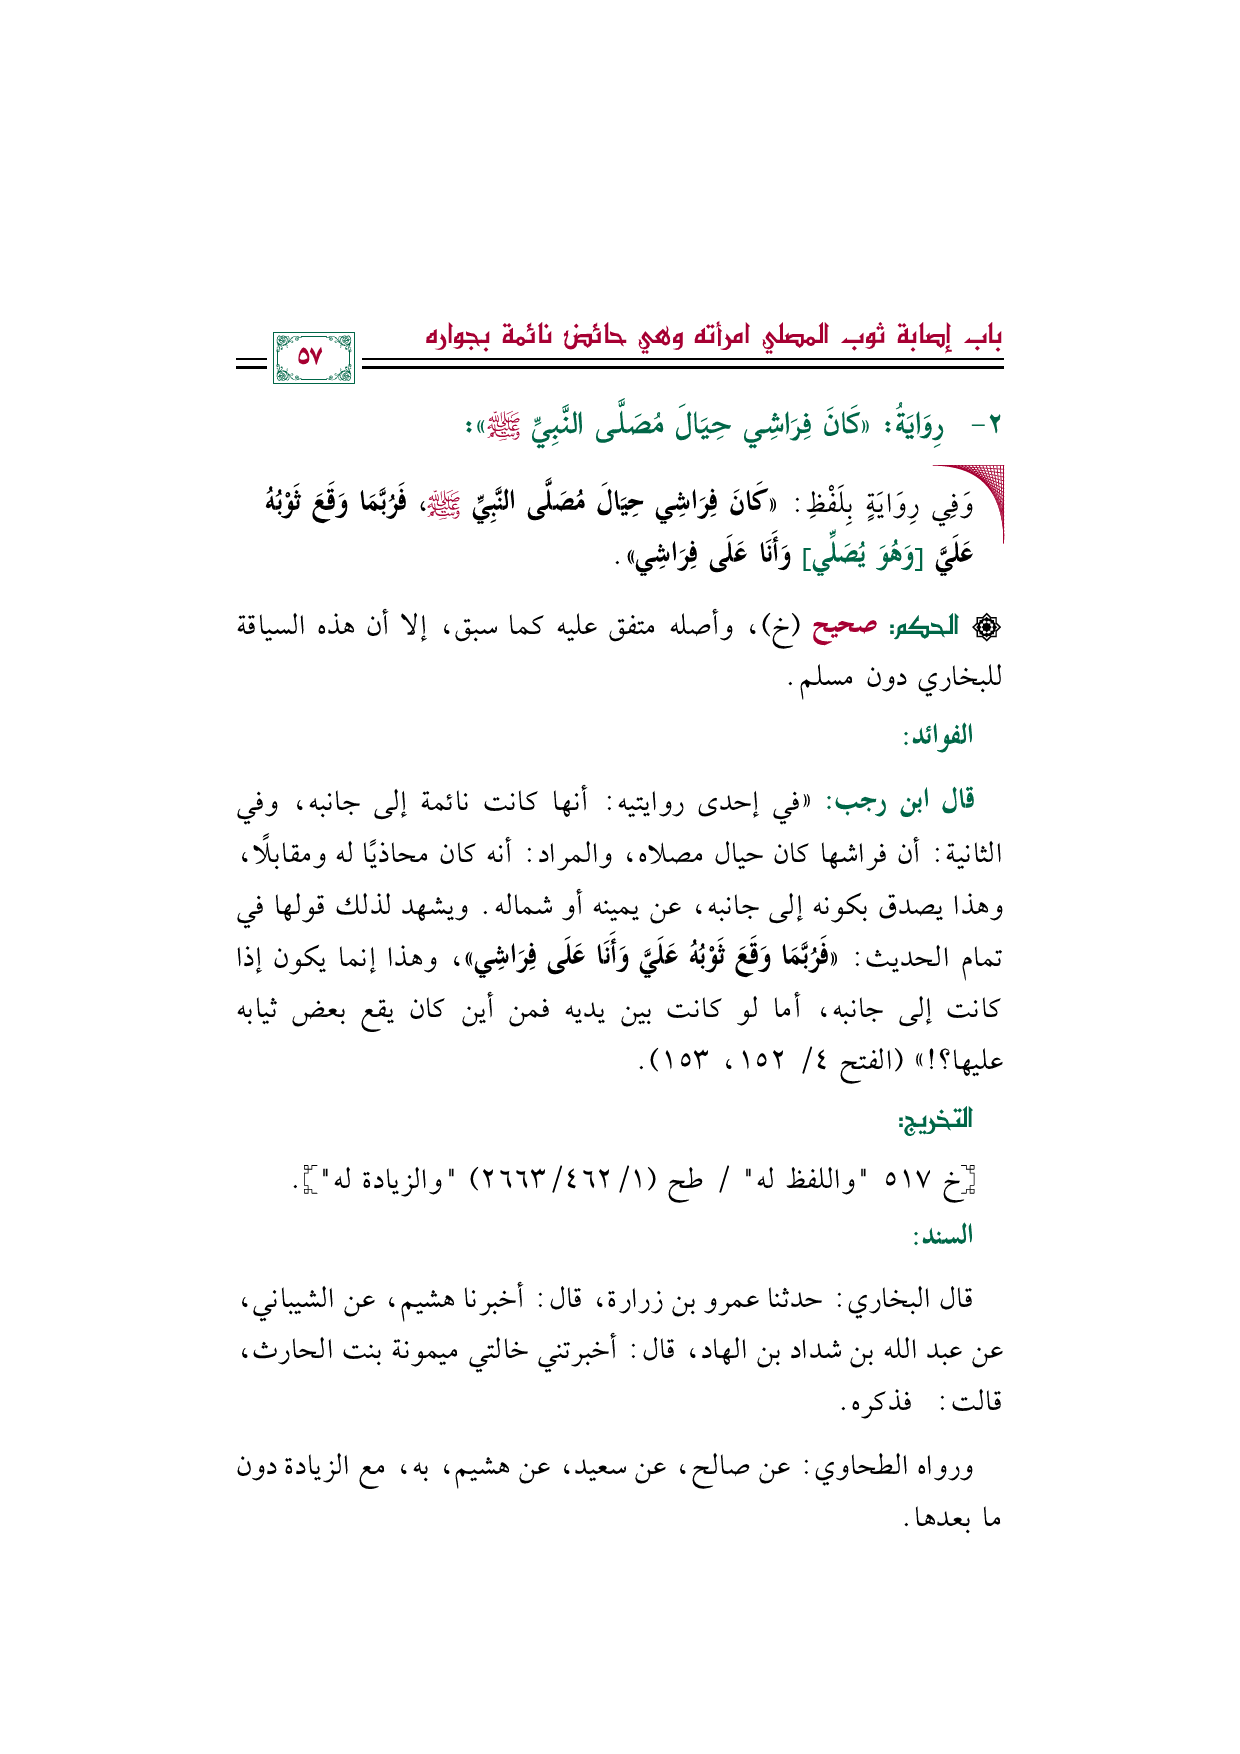 باب إصابة ثوب المصلي امرأته وهي حائض نائمة بجواره
٥٧
٢- رِوَايَةُ: «كَانَ فِرَاشِي حِيَالَ مُصَلَّى النَّبِيِّ ﷺ»:
وَفِي رِوَايَةٍ بِلَفْظِ: «كَانَ فِرَاشِي حِيَالَ مُصَلَّى النَّبِيِّ ﷺ، فَرُبَّمَا وَقَعَ ثَوْبُهُ
عَلَيَّ [وَهُوَ يُصَلِّي] وَأَنَا عَلَى فِرَاشِي».
الحكم: صحيح (خ)، وأصله متفق عليه كما سبق، إلا أن هذه السياقة
للبخاري دون مسلم.
الفوائد:
قال ابن رجب: «في إحدى روايتيه: أنها كانت نائمة إلى جانبه، وفي
الثانية: أن فراشها كان حيال مصلاه، والمراد: أنه كان محاذيًا له ومقابلًا،
وهذا يصدق بكونه إلى جانبه، عن يمينه أو شماله. ويشهد لذلك قولها في
تمام الحديث: «فَرُبَّمَا وَقَعَ ثَوْبُهُ عَلَيَّ وَأَنَا عَلَى فِرَاشِي»، وهذا إنما يكون إذا
كانت إلى جانبه، أما لو كانت بين يديه فمن أين كان يقع بعض ثيابه
عليها؟!» (الفتح ٤/ ١٥٢، ١٥٣).
التخريج:
[خ ٥١٧ "واللفظ له" / طح (١/ ٤٦٢/ ٢٦٦٣) "والزيادة له"].
السند:
قال البخاري: حدثنا عمرو بن زرارة، قال: أخبرنا هشيم، عن الشيباني،
عن عبد الله بن شداد بن الهاد، قال: أخبرتني خالتي ميمونة بنت الحارث،
قالت: فذكره.
ورواه الطحاوي: عن صالح، عن سعيد، عن هشيم، به، مع الزيادة دون
ما بعدها.